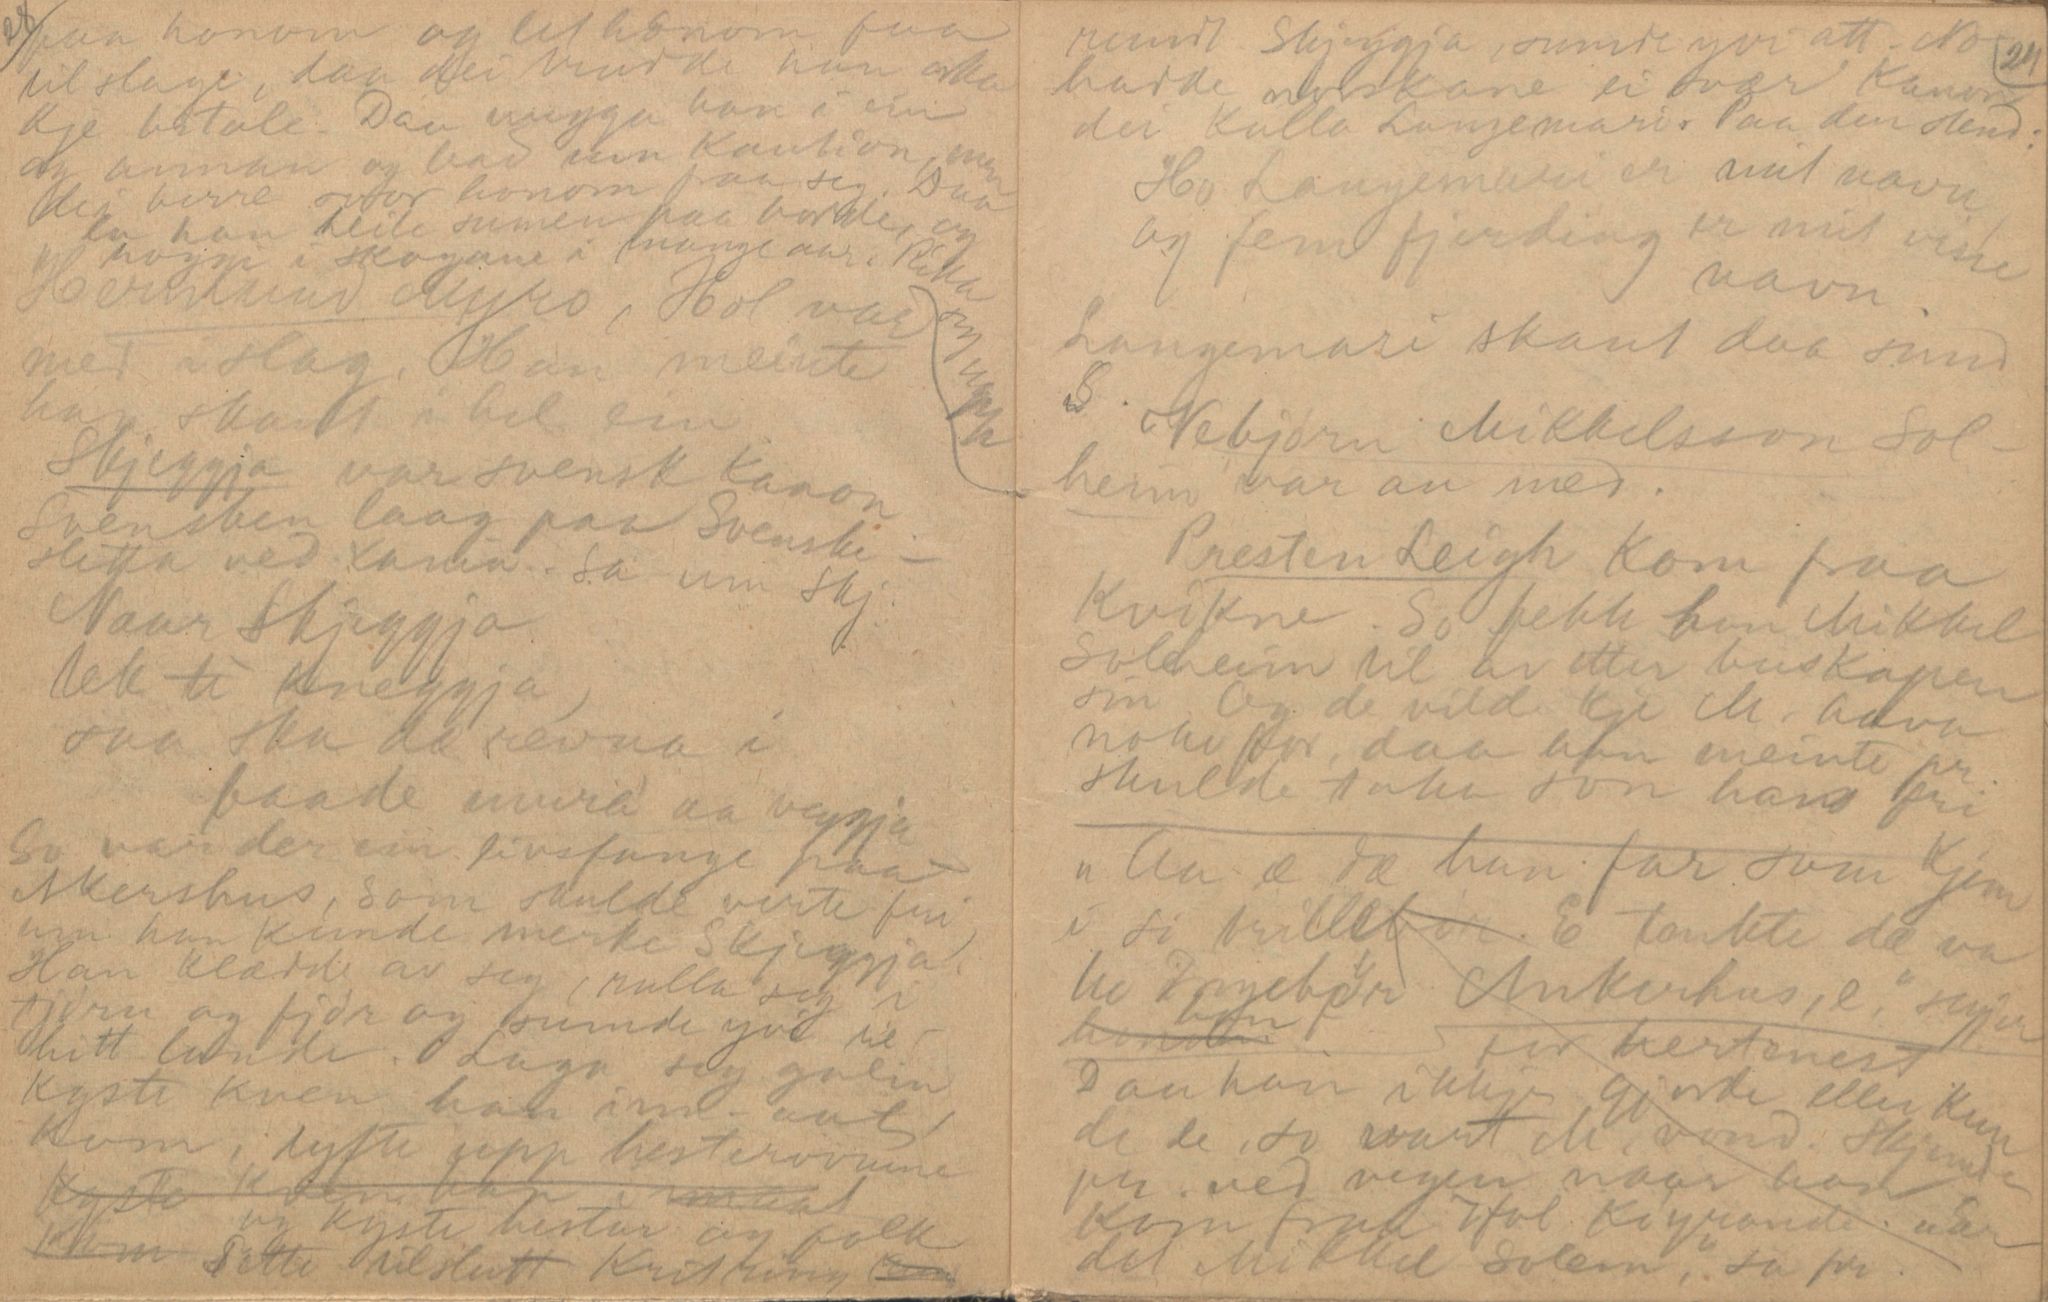 paa honom og let honom faa
tilslage, daa dei trudde han orka
kje betale. Daa mygga han i ein
og annan og bad um kaution, men
dei berre svor honom paa seg. Daa
la han heile sumen paa borde, og
hogg i skogane i mange aar. Rika
seg upp
Hermund Myro, Hol var
med i slag. Han meinte
han skaut i hel ein
Skjeggja var svensk kanon
Svensken laag paa Svenske-
sletta ved . Sa um Skj.
Naar Skjeggja
tek ti kneggja,
saa ska dæ revna i
baade mura aa veggja
So var der ein livsfange paa
Akershus, som skulde verte fri
um han kunde merke Skjeggja.
Han klædde av seg, rulla seg i
tjøru og fjør og sumde yvi te
hitt lande. Laga seg galin
kyste kven han imot
kom, lyfte upp hesterovunne
kyste kven han imot
kom og kyste hestar og folk
Sette tilslutt kritring
24
rundt Skjeggja, sumde yvi att. No
hadde norskane ei svær kanon
dei kalla Langemari. Paa den stend:
Ho Langemari er mit navn
og fem fjerding er mit visse
navn.
Langemari skaut daa sund
S.
Nebjørn Mikkelsson Sol-
heim var au med.
Presten Leigh kom fraa
Kvikne. So fekk han Mikkel
Solheim til av etter buskapen
sin. Og de vilde kje M. hava
noko for, daa han meinte pr.
skulde taka son hans fri
"Aa æ dæ han far som kjem
i si trillebør. E tenkte dæ va
ho Ingebjør Ankerhus, e," segjer
han
for hertenest
Daa han ikkje gjorde eller kun
de de, so vart M. vond. Skjemde
pr. ved vegen naar han
kom fraa Hol køyrande. "Er
det Mikkel Solem," sa pr.